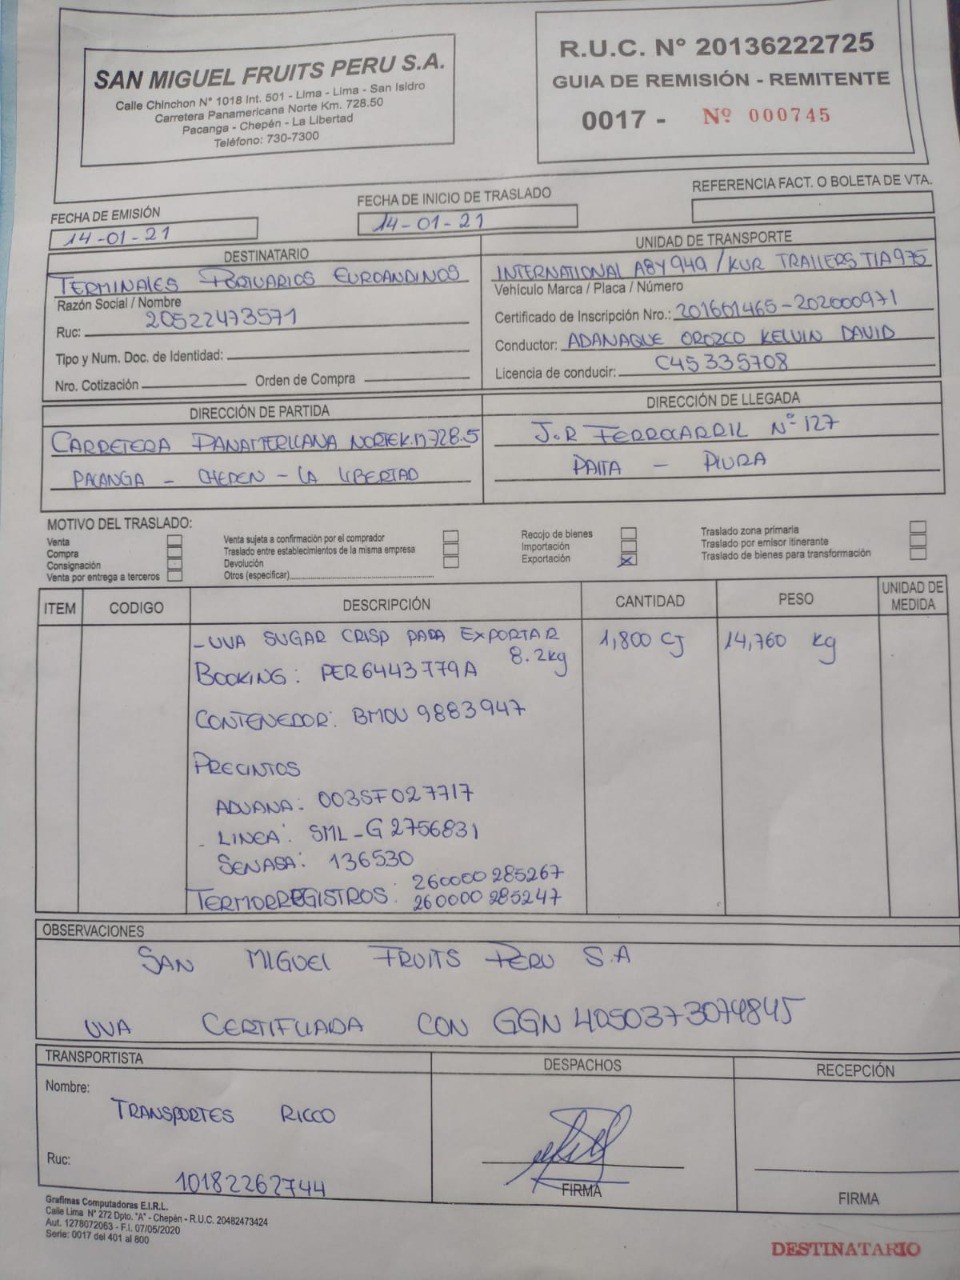 SAN MIGUEL FRUITS PERU S.A.
Calle Chinchon N° 1018 Int. 501 - Lima - Lima - San Isidro
Carretera Panamericana Norte Km. 728.50
Pacanga - Chepén - La Libertad
Teléfono: 730-7300
R.U.C. N° 20136222725
GUIA DE REMISIÓN - REMITENTE
0017 - Nº 000745
FECHA DE EMISIÓN
14-01-21
FECHA DE INICIO DE TRASLADO
14-01-21
REFERENCIA FACT. O BOLETA DE VTA.
DESTINATARIO
TERMINALES PORTUARIOS EUROANDINOS
Razón Social / Nombre
Ruc: 20522473571
Tipo y Num. Doc. de Identidad:
Nro. Cotización Orden de Compra
UNIDAD DE TRANSPORTE
INTERNATIONAL A8Y949 / KUR TRAILERS T1A975
Vehículo Marca / Placa / Número
Certificado de Inscripción Nro.: 201601465-202000971
Conductor: ADANAQUE OROZCO KELVIN DAVID
Licencia de conducir: C45335708
DIRECCIÓN DE PARTIDA
CARRETERA PANAMERICANA NORTE K.M 728.5
PACANGA - CHEPEN - LA LIBERTAD
DIRECCIÓN DE LLEGADA
J.R FERROCARRIL Nº 127
PAITA - PIURA
MOTIVO DEL TRASLADO:
Venta
Compra
Consignación
Venta por entrega a terceros
Venta sujeta a confirmación por el comprador
Traslado entre establecimientos de la misma empresa
Devolución
Otros (especificar)
Recojo de bienes
Importación
Exportación X
Traslado zona primaria
Traslado por emisor itinerante
Traslado de bienes para transformación
ITEM CODIGO DESCRIPCIÓN CANTIDAD PESO UNIDAD DE MEDIDA
- UVA SUGAR CRISP PARA EXPORTAR 1,800 CJ 14,760 kg
8.2kg
BOOKING: PER6443779A
CONTENEDOR: BMOU 9883947
PRECINTOS
ADUANA: 003SF027717
- LINEA: SML-G2756831
SENASA: 136530
TERMORREGISTROS: 260000285267
260000285247
OBSERVACIONES
SAN MIGUEL FRUITS PERU S.A
UVA CERTIFICADA CON GGN 4050373074845
TRANSPORTISTA
Nombre:
TRANSPORTES RICCO
Ruc:
10182262744
DESPACHOS
FIRMA
RECEPCIÓN
FIRMA
Grafimas Computadoras E.I.R.L.
Calle Lima N° 272 Dpto. "A" - Chepén - R.U.C. 20482473424
Aut. 1278072063 - F.I. 07/05/2020
Serie: 0017 del 401 al 800
DESTINATARIO